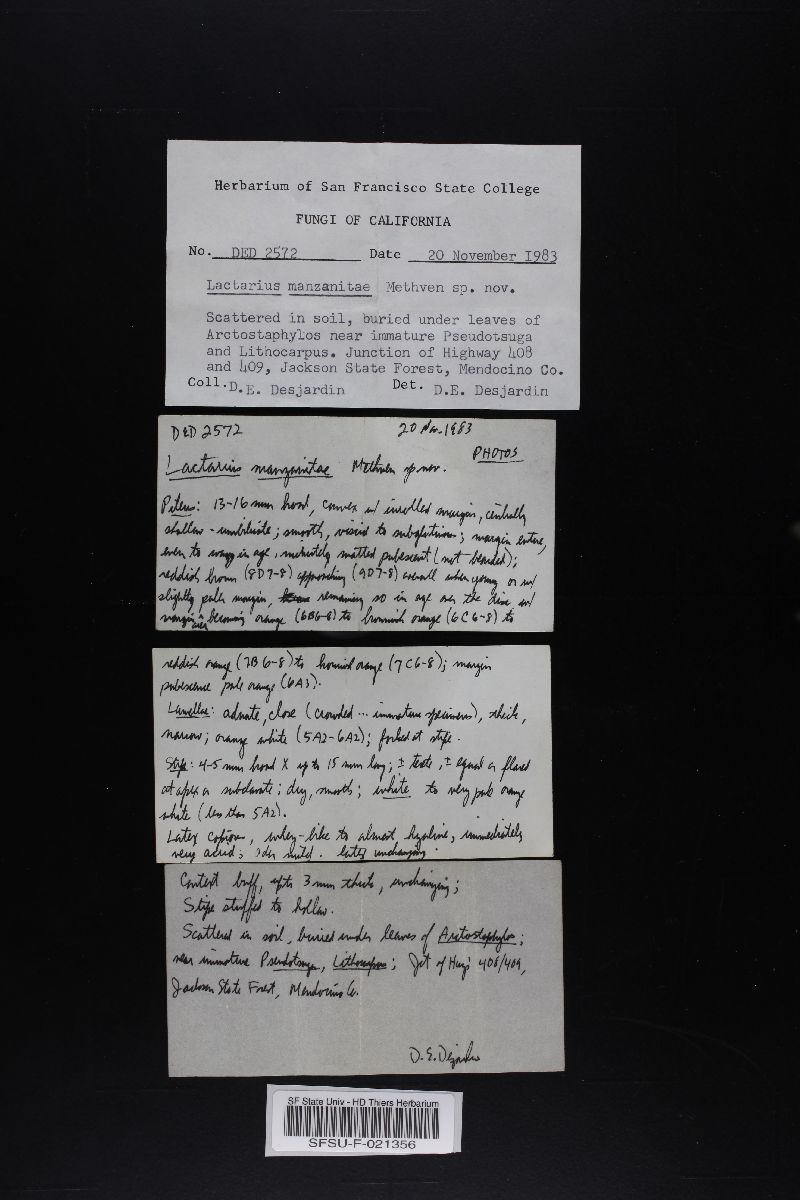 Herbarium of San Francisco State College
FUNGI OF CALIFORNIA
No. DED 2572 Date 20 November 1983
Lactarius manzanitae Methven sp. nov.
Scattered in soil, buried under leaves of
Arctostaphylos near immature Pseudotsuga
and Lithocarpus. Junction of Highway 408
and 409, Jackson State Forest, Mendocino Co.
Coll. D.E. Desjardin Det. D.E. Desjardin
DED 2572 20 Nov. 1983
PHOTOS
Lactarius manzanitae Methven sp nov.
Pileus: 13-16 mm broad, convex w/ inrolled margin, centrally
shallow-umbilicate; smooth, viscid to subglutinous; margin entire,
even to wavy in age, minutely matted pubescent (not bearded);
reddish brown (8D7-8) approaching (9D7-8) overall when young or w/
slightly paler margin, remaining so in age over the disc w/
margin area becoming orange (6B6-8) to brownish orange (6C6-8) to
reddish orange (7B6-8) to brownish orange (7C6-8); margin
pubescence pale orange (6A3).
Lamellae: adnate, close (crowded ... immature specimens), thick,
narrow; orange white (5A2-6A2); forked at stipe.
Stipe: 4-5 mm broad X up to 15 mm long; ± terete, ± equal or flared
at apex or subclavate; dry, smooth; white to very pale orange
white (less than 5A2).
Latex copious, whey-like to almost hyaline, immediately
very acrid; odor mild. latex unchanging.
Context buff, up to 3 mm thick, unchanging;
Stipe stuffed to hollow.
Scattered in soil, buried under leaves of Arctostaphylos;
near immature Pseudotsuga, Lithocarpus; Jct of Hwy's 408/409,
Jackson State Forest, Mendocino Co.
D.E. Desjardin
SF State Univ - HD Thiers Herbarium
SFSU-F-021356